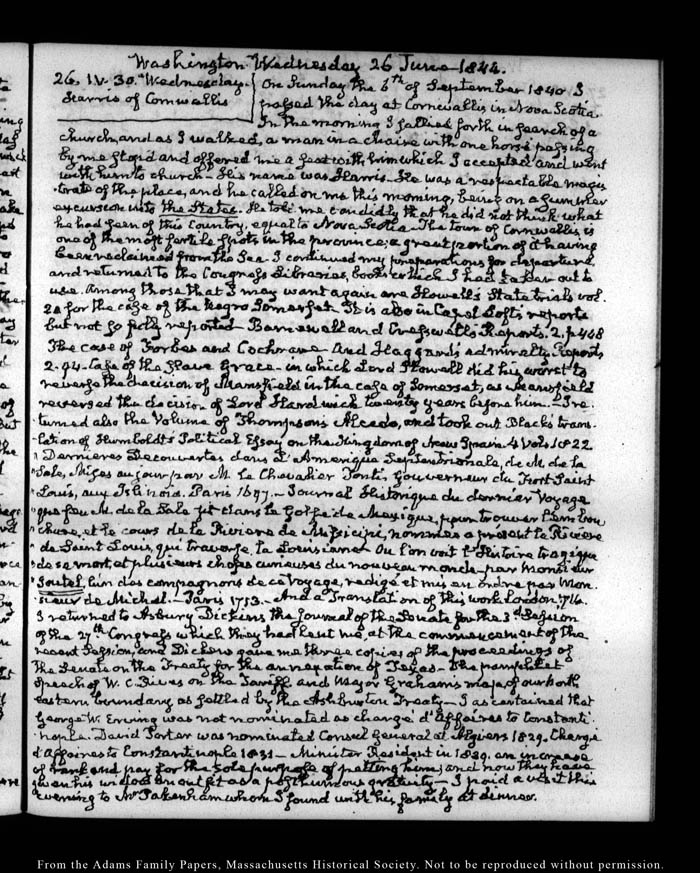 Washington Wednesday 26 June 1844.
26. IV. 30. Wednesday.
Harris of Cornwallis
On Sunday the 6th of September 1840 I
passed the day at Cornwallis in Nova Scotia.
In the morning I sallied forth in search of a
church, and as I walked, a man in a chaise with one horse passing
by me stop'd and offered me a seat with him which I accepted and went
with him to church. His name was Harris. He was a respectable magis-
trate of the place, and he called on me this morning, being on a summer
excursion into the States. He told me candidly that he did not think what
he had seen of this Country, equal to Nova Scotia. The town of Cornwallis is
one of the most fertile spots in the province; a great portion of it having
been reclaimed from the Sea. I continued my preparations for departure
and returned to the Congress Libraries, books which I had taken out to
use. Among those that I may want again are Howell's State trials vol.
20 for the case of the negro Somerset. It is also in Capel Lofts reports
but not so fully reported. Barnewall and Cresswell's Reports. 2. p 448
The case of Forbes and Cochrane. And Haggard's admiralty Reports
2. 94. Case of the Slave Grace. in which Lord Stowell did his worst to
reverse the decision of Mansfield in the case of Somerset, as Mansfield
reversed the decision of Lord Hardwick twenty years before him. I re-
turned also the Volume of Thompson's Alcedo, and took out Black's trans-
lation of Humboldt's Political Essay on the Kingdom of New Spain 4 Vols 1822
" Dernieres Decouvertes dans l'Amerique Septentrionale, de M. de la
" Sale, Mises au jour par M. le Chevalier Tonti, Gouverneur du Fort Saint
" Louis, aux Islinois. Paris 1697. Journal Historique du dernier Voyage
" que feu M. de la Sale fit dans le Golfe de Mexique, pour trouver l'embou
" chure, et le cours de la Riviere de Missicipi, nommée a present la Riviere
" de Saint Louis, qui traverse la Louisiane. Ou l'on voit l'Histoire tragique
" de sa mort, et plusieurs choses curieuses du nouveau monde. par Monsieur
" Joutel, l'un des compagnons de ce Voyage, redigé et mis en ordre par Mon
" sieur de Michel. Paris 1713. And a Translation of this work London 1714.
I returned to Asbury Dickins the Journal of the Senate for the 3d Session
of the 27th Congress which they had lent me, at the commencement of the
recent Session, and Dickens gave me three copies of the proceedings of
the Senate on the Treaty for the annexation of Texas. The pamphlet
Speech of W. C. Rives on the Tariff and Major Graham's map of our North
eastern boundary as settled by the Ashburton Treaty. I ascertained that
George W. Erving was not nominated as chargé d'Affaires to Constanti-
nople. David Porter was nominated Consul General at Algiers 1829. Chargé
d'Affaires to Constantinople 1831. Minister Resident in 1839. an increase
of rank and pay for the sole purpose of petting him; and now they have
given his widow an outfit as a posthumous gratuity. I paid a visit this
evening to Mr Pakenham whom I found with his family at dinner.
From the Adams Family Papers, Massachusetts Historical Society. Not to be reproduced without permission.